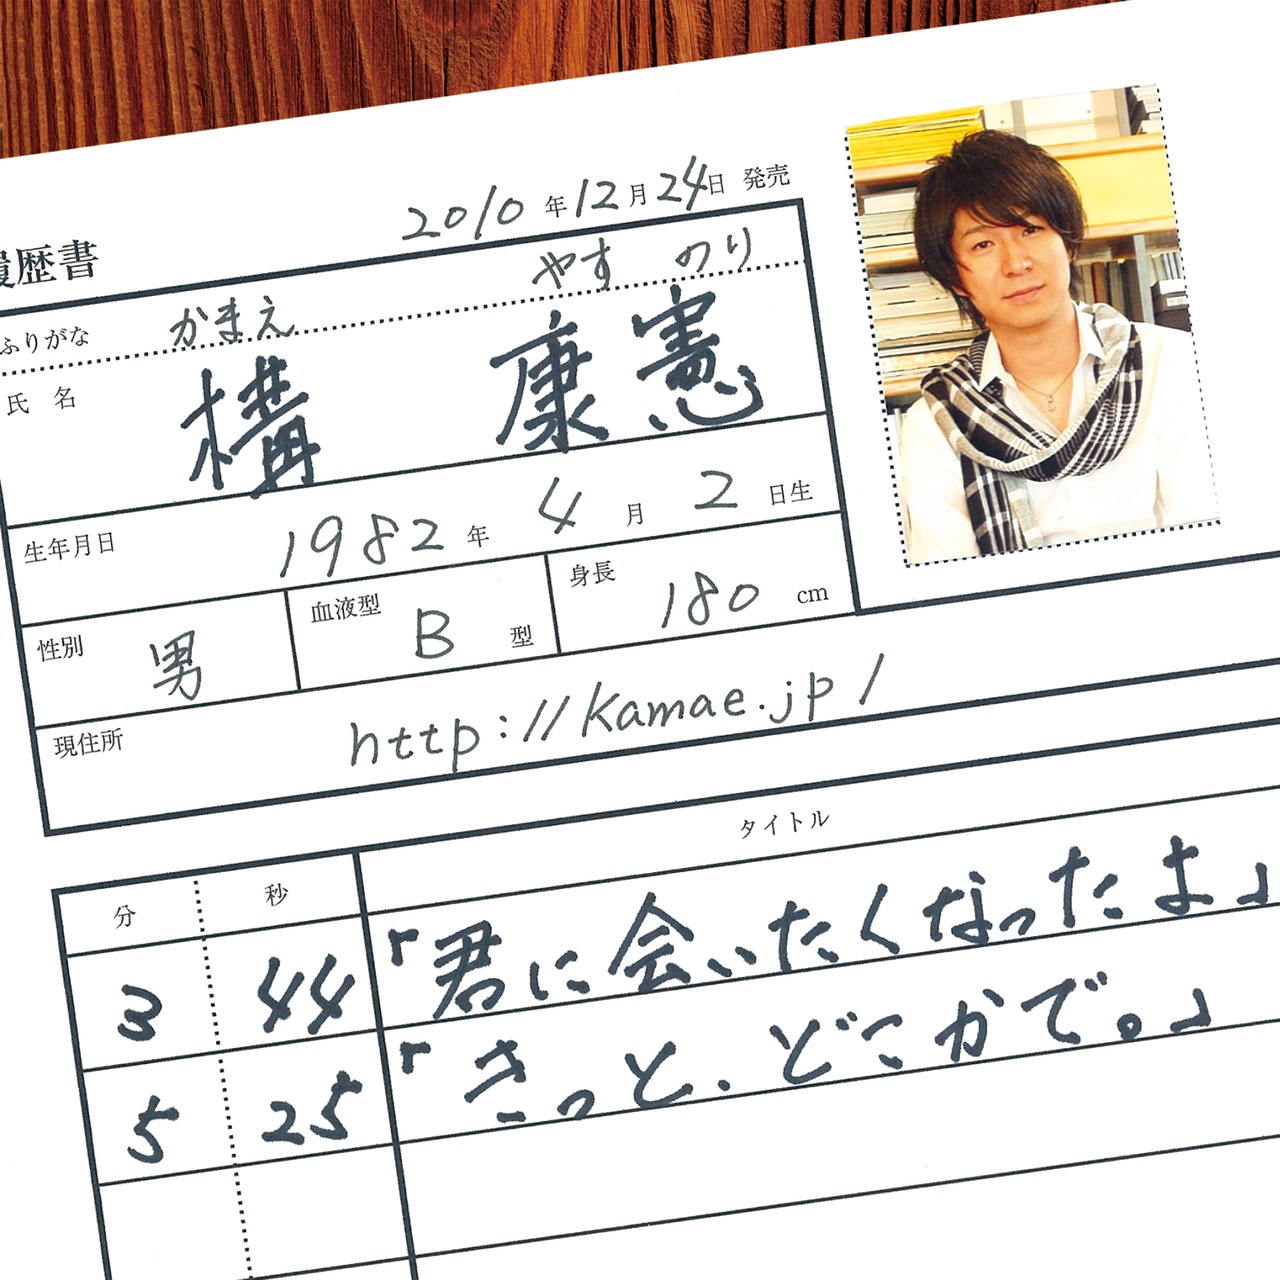 2010年12月24日 発売
履歴書
ふりがな かまえ やす のり
氏 名 構 康憲
生年月日 1982年 4月 2日生
性別 男 血液型 B型 身長 180cm
現住所 http://kamae.jp/
分 秒 タイトル
3 44 「君に会いたくなったよ」
5 25 「きっと、どこかで。」